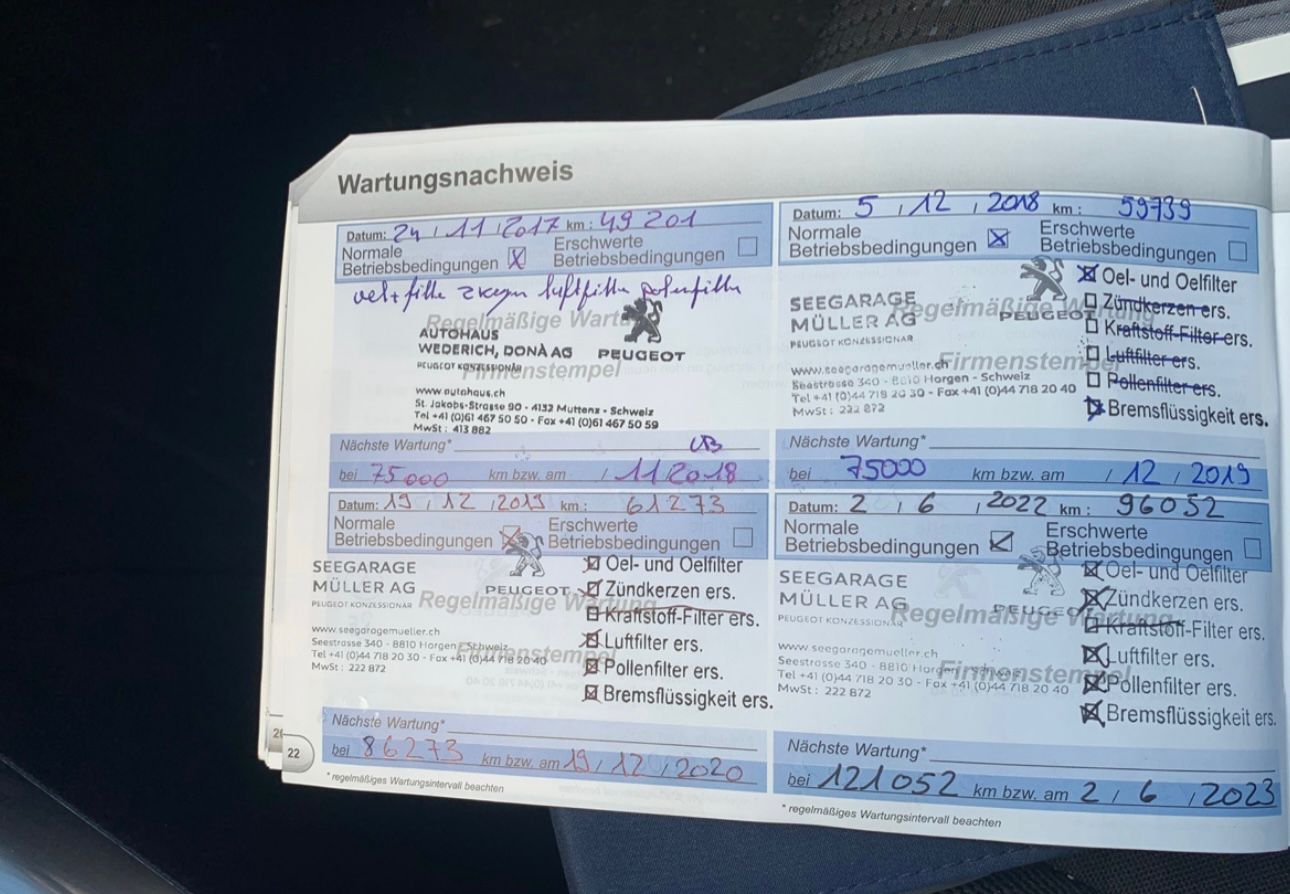 Wartungsnachweis
Datum: 24 / 11 / 2017 km: 49 201
Normale
Betriebsbedingungen
Erschwerte
Betriebsbedingungen
oel + luftfilter polenfilter
Regelmäßige Wartu
AUTOHAUS
WEDERICH, DONÀ AG PEUGEOT
PEUGEOT KONZESSIONÄR
Firmenstempel
www.autohaus.ch
St. Jakobs-Strasse 90 - 4132 Muttenz - Schweiz
Tel +41 (0)61 467 50 50 - Fax +41 (0)61 467 50 59
MwSt : 413 882
Nächste Wartung*
bei 75000 km bzw. am / 11 / 2018
Datum: 5 / 12 / 2018 km: 59739
Normale
Betriebsbedingungen
Erschwerte
Betriebsbedingungen
SEEGARAGE
MÜLLER AG PEUGEOT
PEUGEOT KONZESSIONÄR
Regelmäßige Wartung
Firmenstempel
www.seegaragemueller.ch
Seestrasse 340 - 8810 Horgen - Schweiz
Tel +41 (0)44 718 20 30 - Fax +41 (0)44 718 20 40
MwSt : 222 872
Oel- und Oelfilter
Zündkerzen ers.
Kraftstoff-Filter ers.
Luftfilter ers.
Pollenfilter ers.
Bremsflüssigkeit ers.
Nächste Wartung*
bei 75000 km bzw. am / 12 / 2019
Datum: 19 / 12 / 2019 km: 61273
Normale
Betriebsbedingungen
Erschwerte
Betriebsbedingungen
SEEGARAGE
MÜLLER AG PEUGEOT
PEUGEOT KONZESSIONÄR
Regelmäßige Wartung
Firmenstempel
www.seegaragemueller.ch
Seestrasse 340 - 8810 Horgen - Schweiz
Tel +41 (0)44 718 20 30 - Fax +41 (0)44 718 20 40
MwSt : 222 872
Oel- und Oelfilter
Zündkerzen ers.
Kraftstoff-Filter ers.
Luftfilter ers.
Pollenfilter ers.
Bremsflüssigkeit ers.
Nächste Wartung*
bei 86273 km bzw. am 19 / 12 / 2020
* regelmäßiges Wartungsintervall beachten
Datum: 2 / 6 / 2022 km: 96052
Normale
Betriebsbedingungen
Erschwerte
Betriebsbedingungen
SEEGARAGE
MÜLLER AG PEUGEOT
PEUGEOT KONZESSIONÄR
Regelmäßige Wartung
Firmenstempel
www.seegaragemueller.ch
Seestrasse 340 - 8810 Horgen - Schweiz
Tel +41 (0)44 718 20 30 - Fax +41 (0)44 718 20 40
MwSt : 222 872
Oel- und Oelfilter
Zündkerzen ers.
Kraftstoff-Filter ers.
Luftfilter ers.
Pollenfilter ers.
Bremsflüssigkeit ers.
Nächste Wartung*
bei 121052 km bzw. am 2 / 6 / 2023
* regelmäßiges Wartungsintervall beachten
22